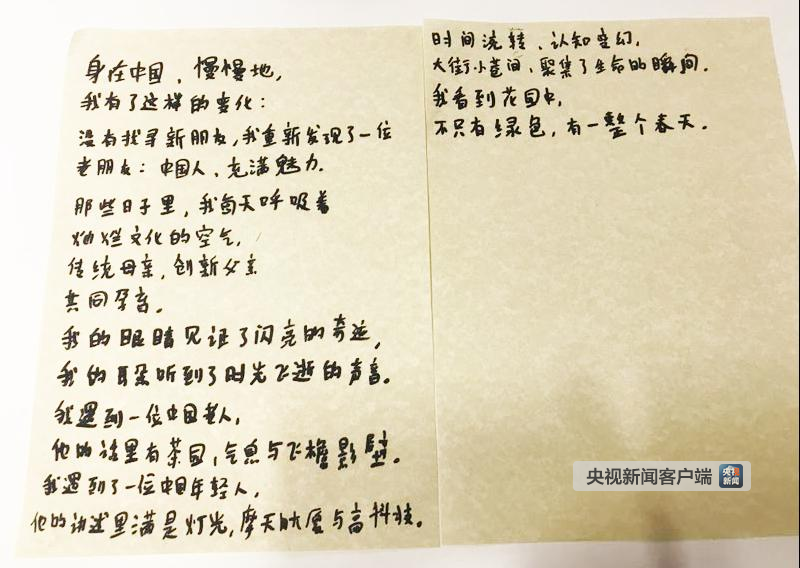 身在中国，慢慢地，
我有了这样的变化：
没有找寻新朋友，我重新发现了一位
老朋友：中国人，充满魅力.
那些日子里，我每天呼吸着
灿烂文化的空气，
传统母亲，创新父亲
共同孕育。
我的眼睛见证了闪亮的奇迹，
我的耳朵听到了时光飞逝的声音。
我遇到一位中国老人，
他的话里有茶园，气息与飞檐影壁。
我遇到了一位中国年轻人，
他的讲述里满是灯光，摩天大厦与高科技。
时间流转、认知变幻，
大街小巷间，聚集了生命的瞬间.
我看到花园中，
不只有绿色，有一整个春天.
央视新闻客户端
央视
新闻